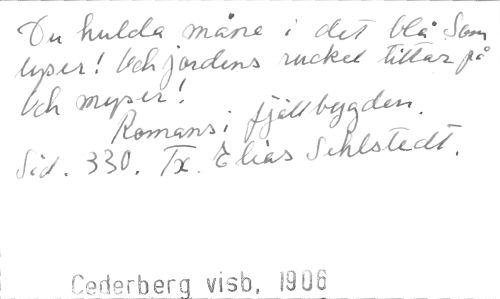 Du hulda måne i det blå Som
lyser! Och jordens rucket tittar på
Och myser!
Romans i fjällbygden.
Sid. 330. Tx. Elias Sehlstedt.
Cederberg visb, 1906